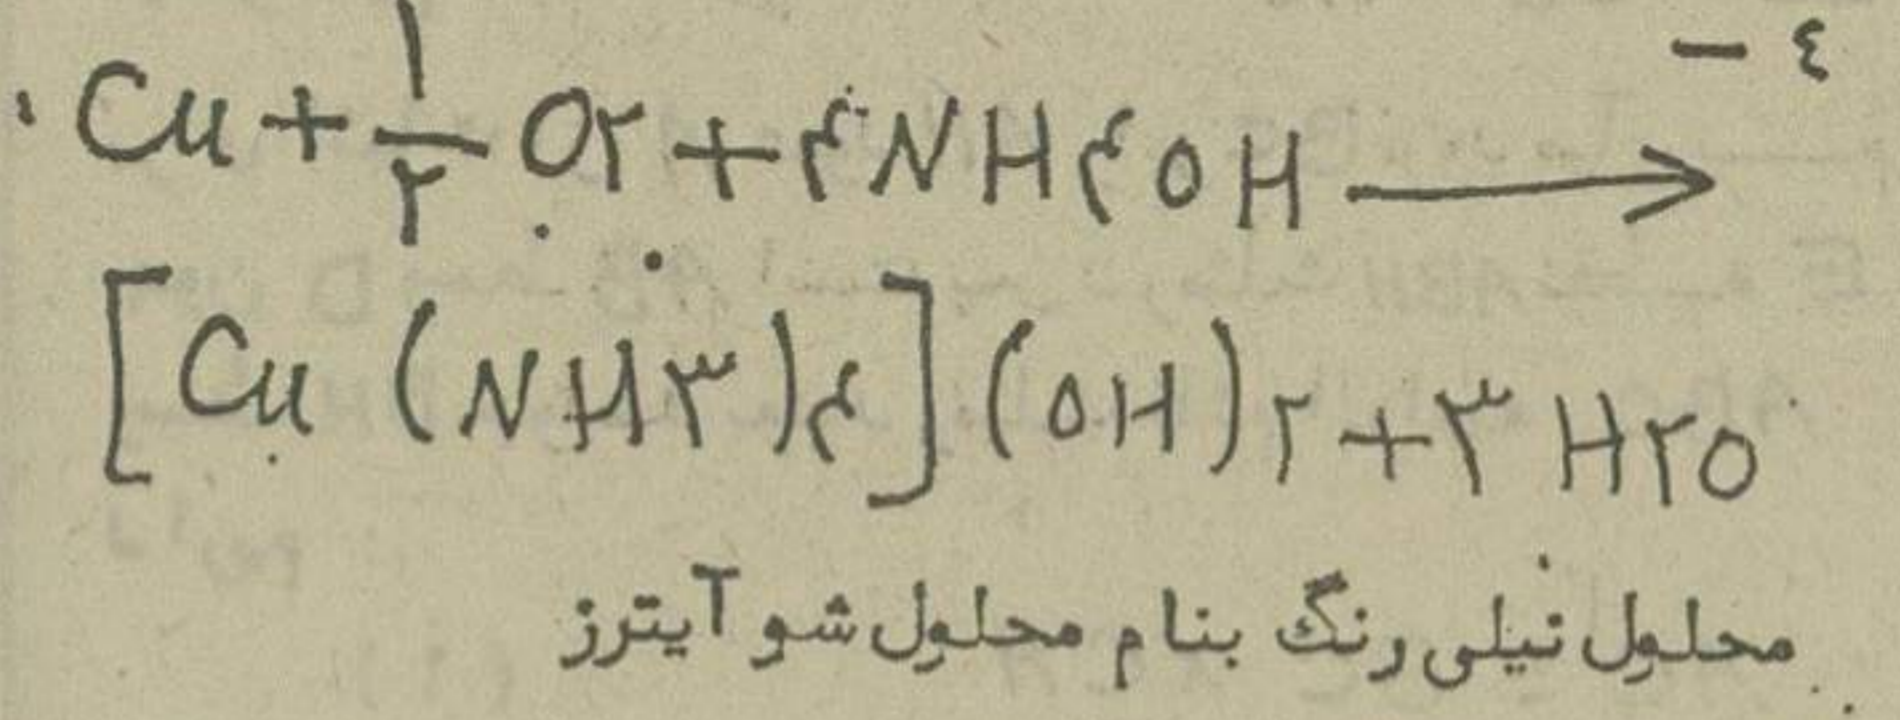 ٤ –
Cu + ۱/۲ O۲ + ۴NH۴OH ⟶
[Cu (NH۳)۴] (OH)۲ + ۳ H۲O
محلول نیلی رنگ بنام محلول شو آیترز